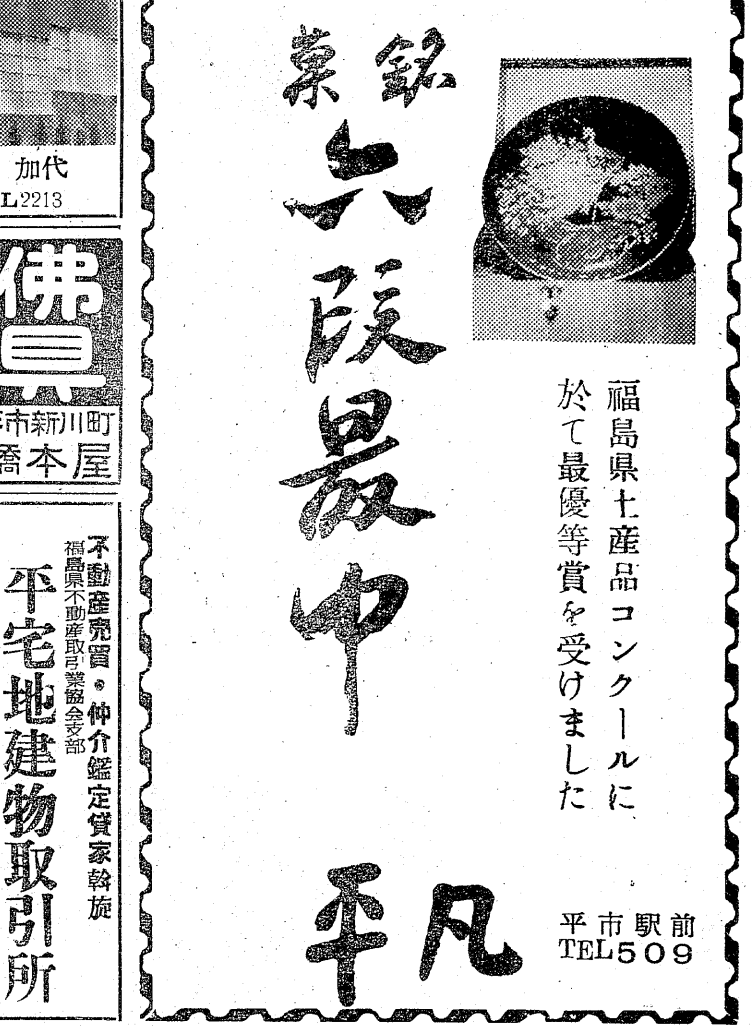 銘菓
六段最中
福島県土産品コンクールに
於て最優等賞を受けました
凡平
平市駅前
TEL509
加代
L2213
佛具
市新川町
橋本屋
不動産売買・仲介鑑定貸家斡旋
福島県不動産取引業協会支部
平宅地建物取引所